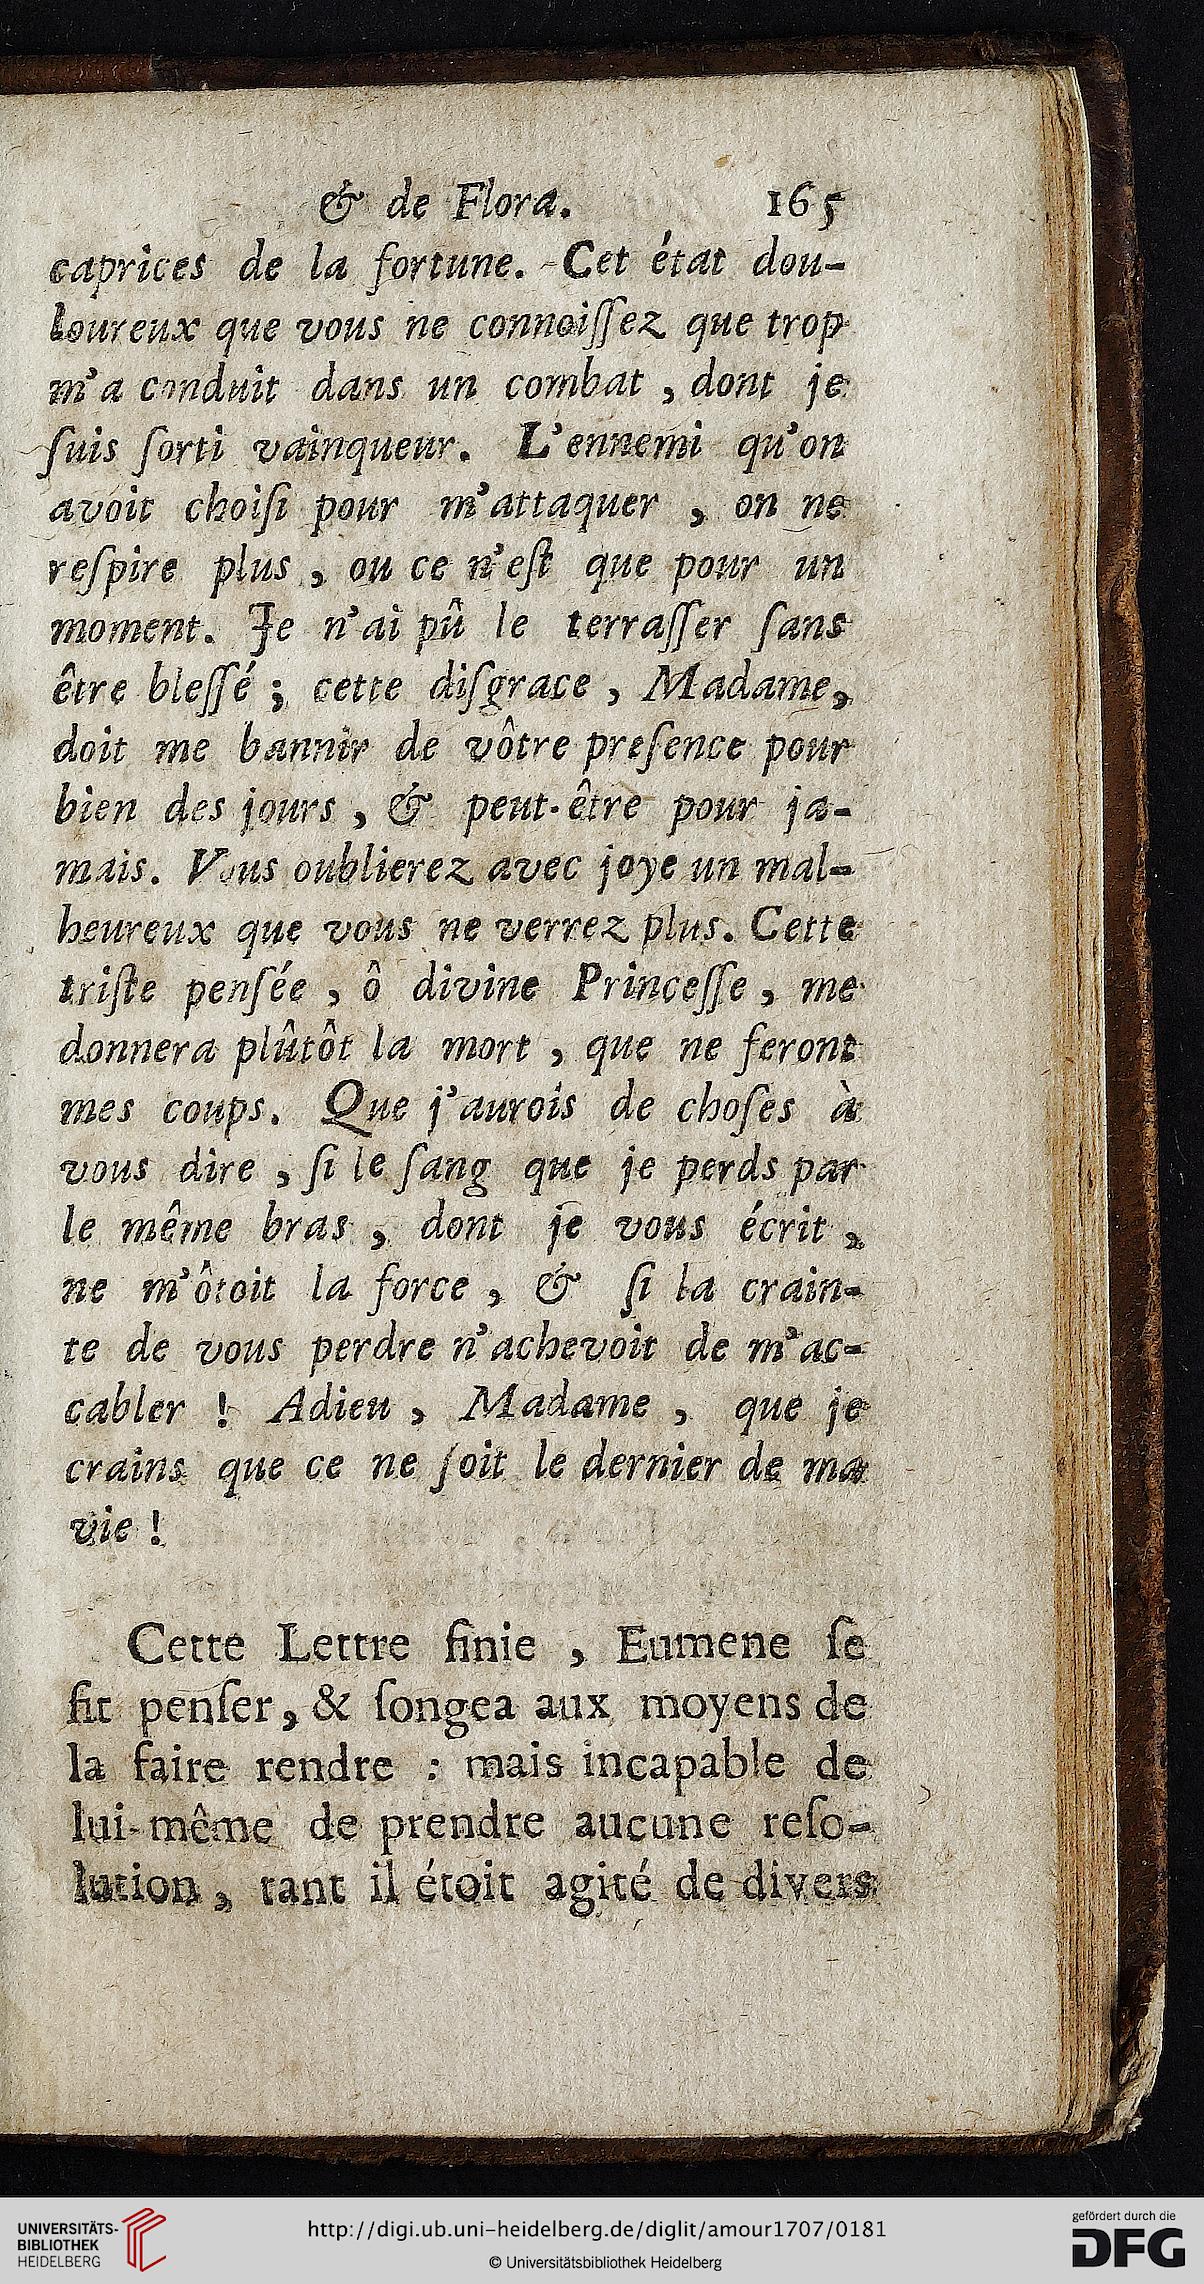 & de Flora. 165
caprices de la fortune. Cet état dou-
loureux que vous ne connoiſſez que trop
m'a conduit dans un combat , dont je
ſuis ſorti vainqueur. L'ennemi qu'on
avoit choiſi pour m'attaquer , on ne
reſpire plus , ou ce n'eſt que pour un
moment. Je n'ai pû le terraſſer ſans
être bleſſé ; cette diſgrace , Madame,
doit me bannir de vôtre preſence pour
bien des jours , & peut-être pour ja-
mais. Vous oublierez avec joye un mal-
heureux que vous ne verrez plus. Cette
triſte penſée , ô divine Princeſſe , me
donnera plûtôt la mort , que ne feront
mes coups. Que j'aurois de choſes à
vous dire , ſi le ſang que je perds par
le même bras , dont je vous écrit ,
ne m'ôtoit la force , & ſi la crain-
te de vous perdre n'achevoit de m'ac-
cabler ! Adieu , Madame , que je
crains que ce ne ſoit le dernier de ma
vie !
Cette Lettre finie , Eumene ſe
fit penſer, & ſongea aux moyens de
la faire rendre : mais incapable de
lui-même de prendre aucune reſo-
lution , tant il étoit agité de divers
UNIVERSITÄTS-
BIBLIOTHEK
HEIDELBERG
http://digi.ub.uni-heidelberg.de/diglit/amour1707/0181
© Universitätsbibliothek Heidelberg
gefördert durch die
DFG